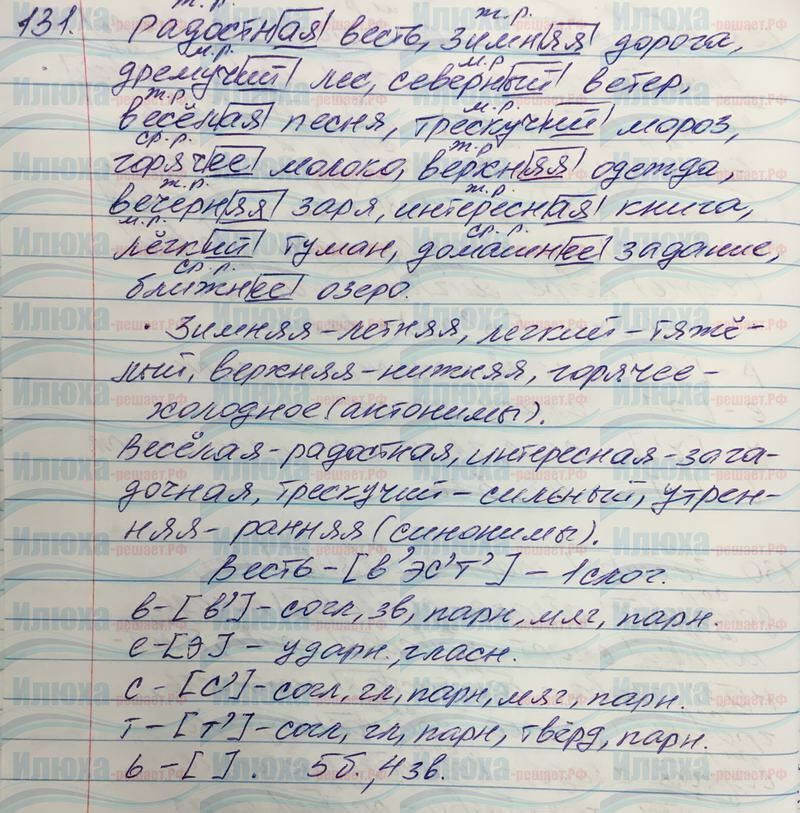 ж.р. ж.р.
131. Радостная весть, зимняя дорога,
м.р. м.р
дремучий лес, северный ветер,
ж.р. м.р.
весёлая песня, трескучий мороз,
ср.р. ж.р
горячее молоко, верхняя одежда,
ж.р. ж.р.
вечерняя заря, интересная книга,
м.р. ср.р.
лёгкий туман, домашнее задание,
ср.р.
ближнее озеро.
· Зимняя-летняя, легкий-тяжё-
лый, верхняя-нижняя, горячее-
холодное (антонимы).
Весёлая-радостная, интересная-зага-
дочная, трескучий-сильный, утрен-
няя-ранняя (синонимы).
Весть-[в'эс'т']-1слог.
в-[в']-согл, зв, парн, мяг, парн.
е-[э]-ударн., гласн.
с-[с']-согл, гл, парн, мяг, парн.
т-[т']-согл, гл, парн, твёрд, парн.
ь-[ ]. 5б., 4зв.
Илюха-решает.РФ